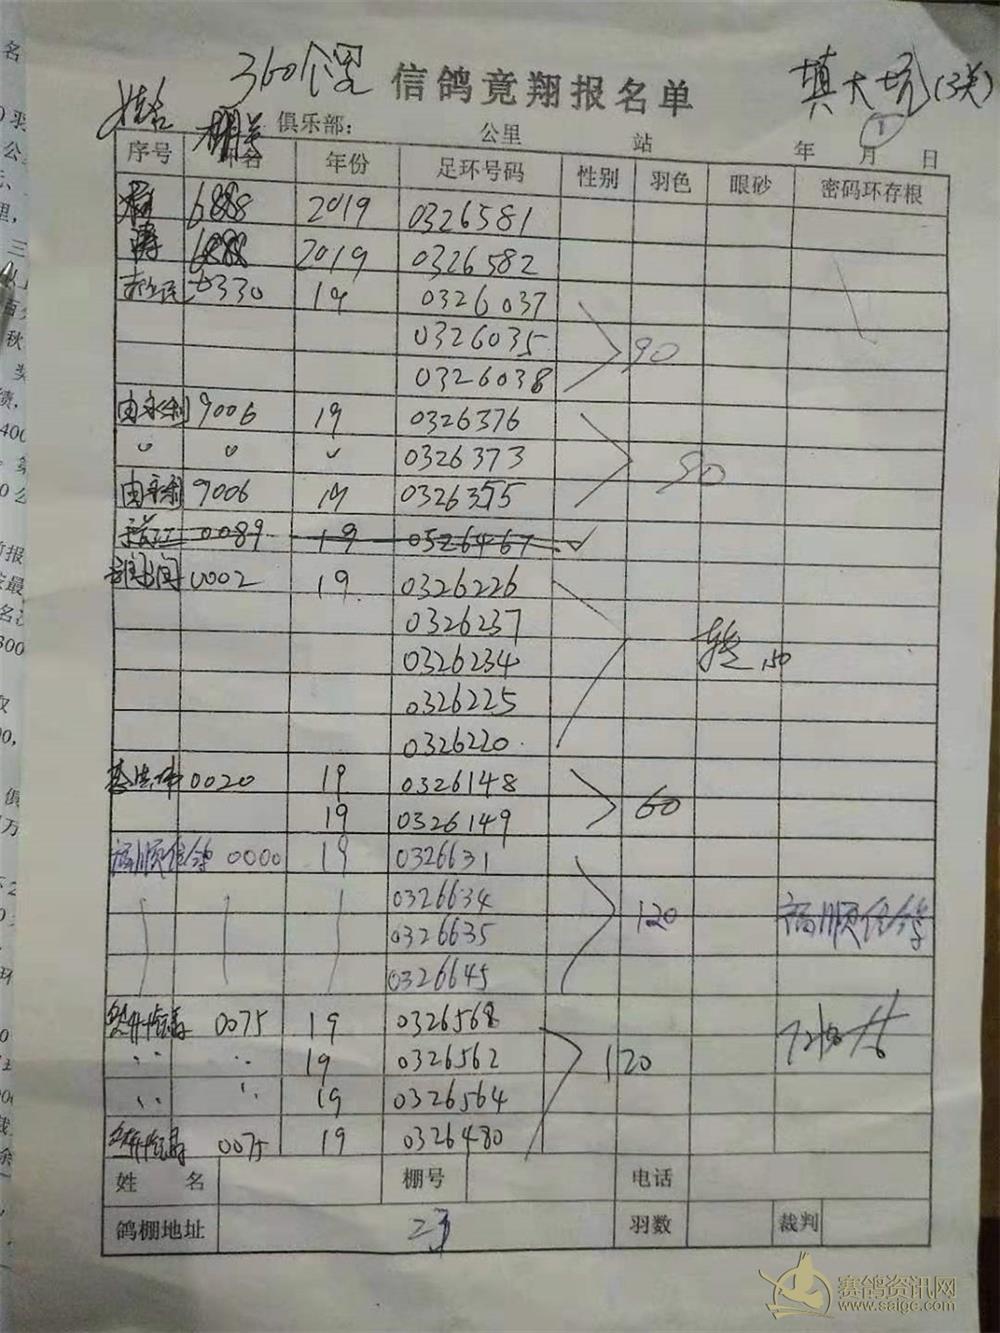 360个是 信鸽竟翔报名单 填大坑(3关)
姓名 棚号 俱乐部: 公里 站 年 月 日
①
序号 名 年份 足环号码 性别 羽色 眼砂 密码环存根
6888 2019 0326581
6888 2019 0326582
330 19 0326037
0326035 90
0326038
由永利 9006 19 0326376
〃 〃 〃 0326373
90
由永利 9006 19 0326375
0089 19 0326467
0002 19 0326226
0326237
0326234 转150
0326225
0326220
0020 19 0326148
19 0326149 60
福顺信鸽 0000 19 0326631
0326634 120 福顺信鸽
0326635
0326645
0075 19 0326568
〃 〃 19 0326562 120
〃 〃 19 0326564
0075 19 0326480
姓 名 棚号 电话
鸽棚地址 23 羽数 裁判
赛鸽资讯网
www.saigc.com